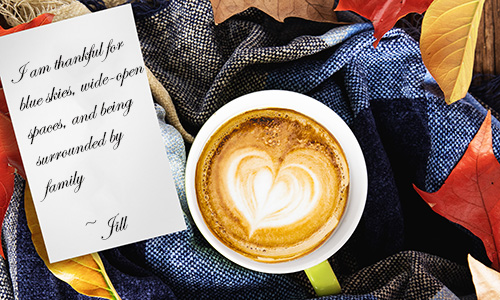 I am thankful for
blue skies, wide-open
spaces, and being
surrounded by
family
~ Jill